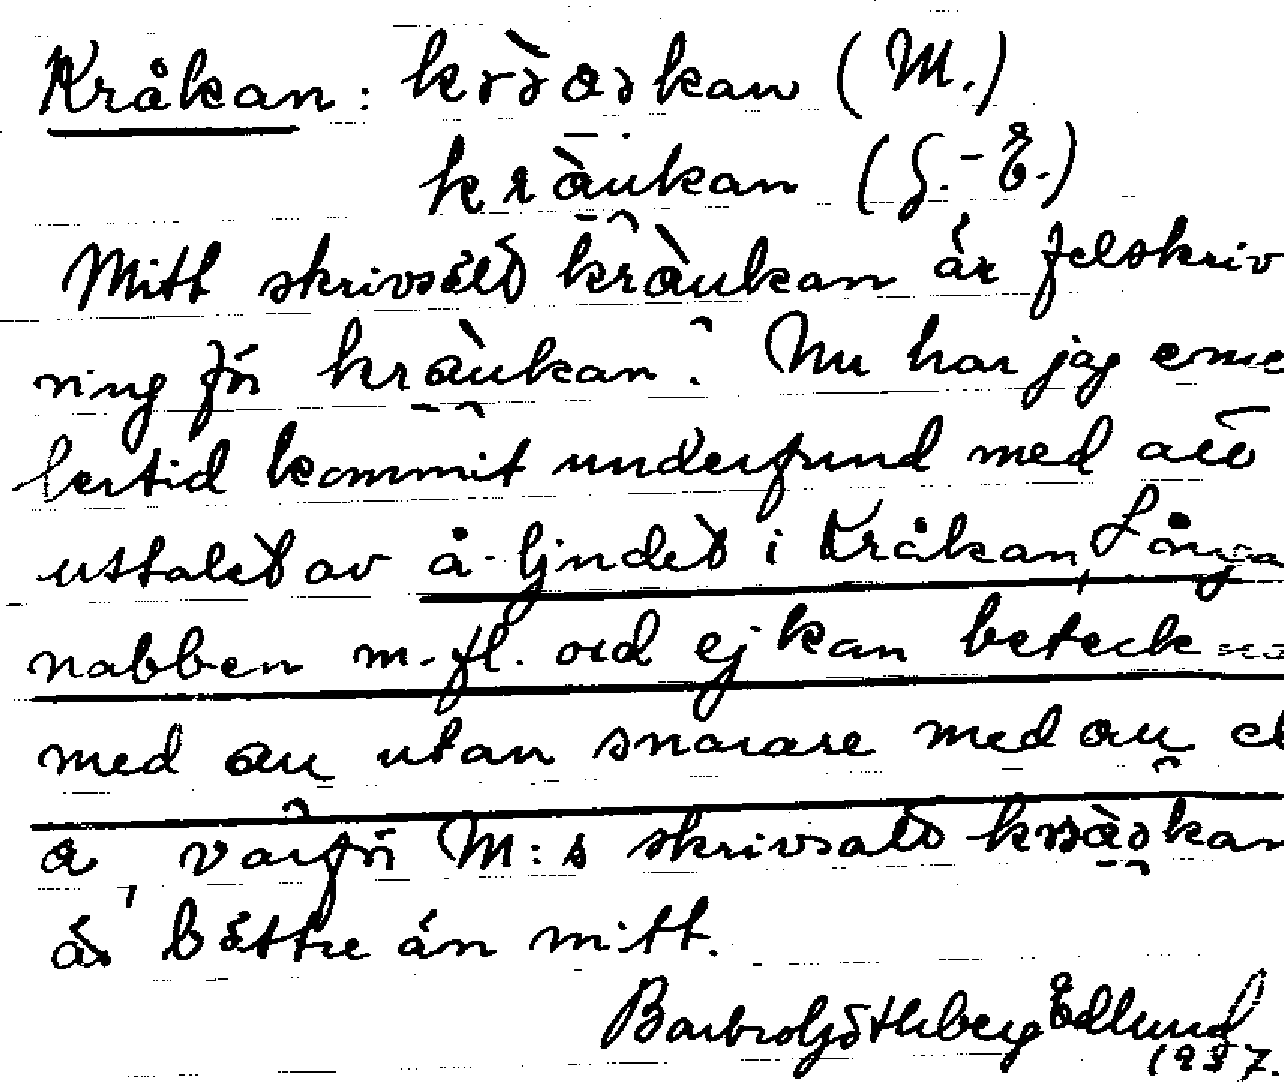 Kråkan: krɔ̀ɑɔkan (M.)
kràukan (G.-E.)
Mitt skrivsätt kràukan är felskriv
ning för kràukan. Nu har jag eme
lertid kommit underfund med att
uttalet av å-ljudet i Kråkan, Långa
nabben m.fl. ord ej kan beteckna
med au utan snarare med au el
a, varför M:s skrivsätt kan
är bättre än mitt.
Barbro Göthberg Edlund
1937.